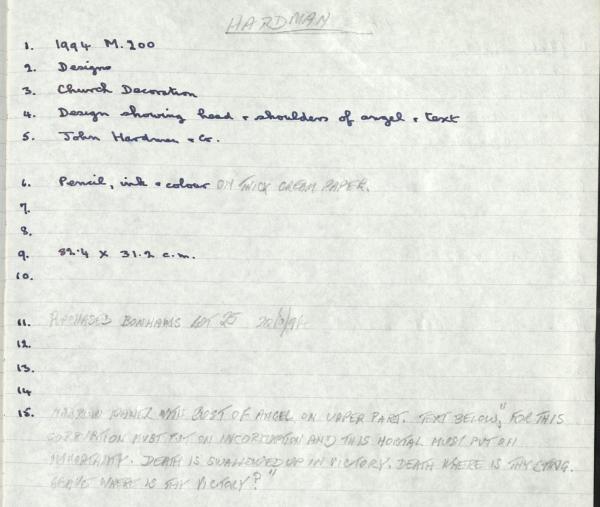 HARDMAN
1. 1994 M.200
2. Designs
3. Church Decoration
4. Design showing head + shoulders of angel + text
5. John Hardman + Co.
6. Pencil, ink + colour ON THICK CREAM PAPER.
7.
8.
9. 82.4 x 31.2 c.m.
10.
11. PURCHASED BONHAMS LOT 25
12.
13.
14
15. NARROW PANEL WITH BUST OF ANGEL ON UPPER PART. TEXT BELOW, "FOR THIS
CORRUPTION MUST PUT ON INCORRUPTION AND THIS MORTAL MUST PUT ON
IMMORTALITY. DEATH IS SWALLOWED UP IN VICTORY. DEATH WHERE IS THY STING.
GRAVE WHERE IS THY VICTORY?"